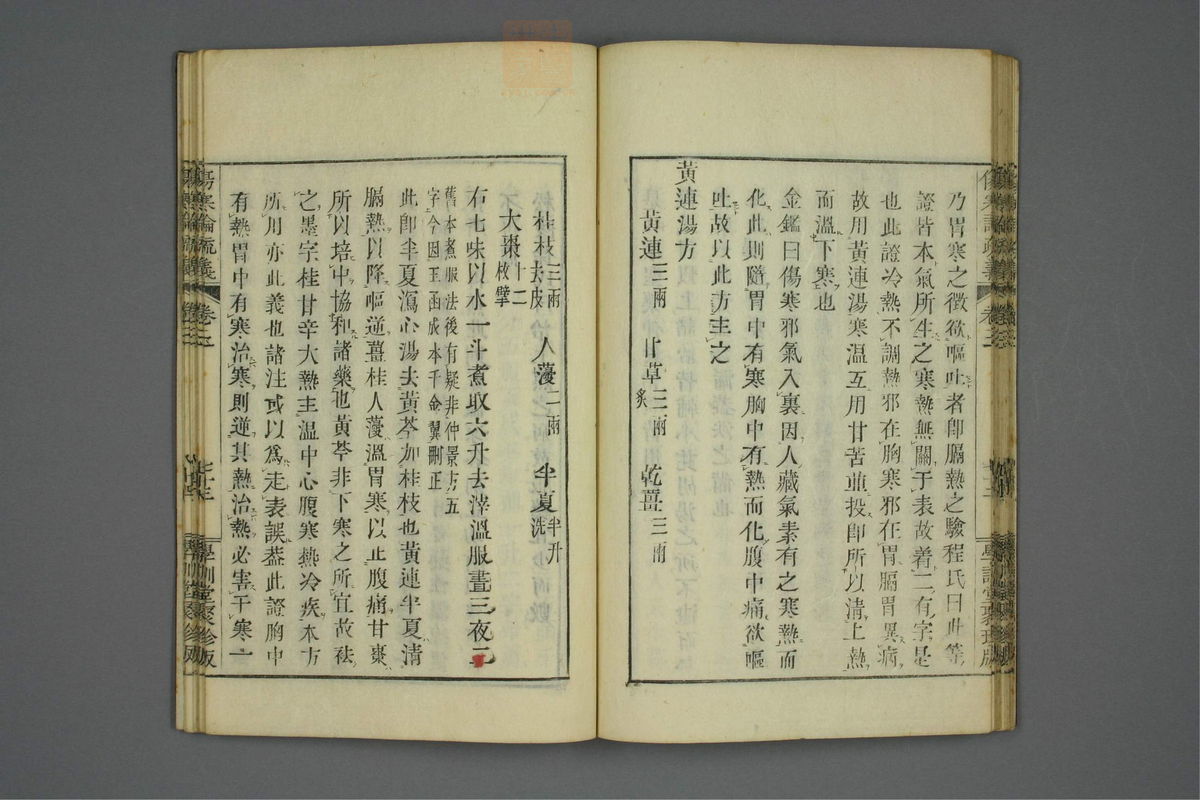 乃胃寒之徵欲嘔吐者卽膈熱之驗程氏曰此等
證皆本氣所生之寒熱無關于表故着二有字是
也此證冷熱不調熱邪在胸寒邪在胃膈胃異病
故用黃連湯寒溫互用甘苦並投卽所以清上熱
而溫下寒也
金鑑曰傷寒邪氣入裏因人藏氣素有之寒熱而
化此則隨胃中有寒胸中有熱而化腹中痛欲嘔
吐故以此方主之
黃連湯方
黃連三兩 甘草三兩炙 乾薑三兩
桂枝三兩去皮 人薓二兩 半夏半升洗
大棗十二枚擘
右七味以水一斗煮取六升去滓溫服晝三夜二
舊本煮服法後有疑非仲景方五
字今因玉函成本千金翼刪正
此卽半夏瀉心湯去黃芩加桂枝也黃連半夏清
膈熱以降嘔逆薑桂人薓溫胃寒以止腹痛甘棗
所以培中協和諸藥也黃芩非下寒之所宜故袪
之墨字桂甘辛大熱主溫中心腹寒熱冷疾本方
所用亦此義也諸注或以爲走表誤葢此證胸中
有熱胃中有寒治寒則逆其熱治熱必害于寒一
傷寒論疏義 卷三 七十三 學訓堂聚珍版